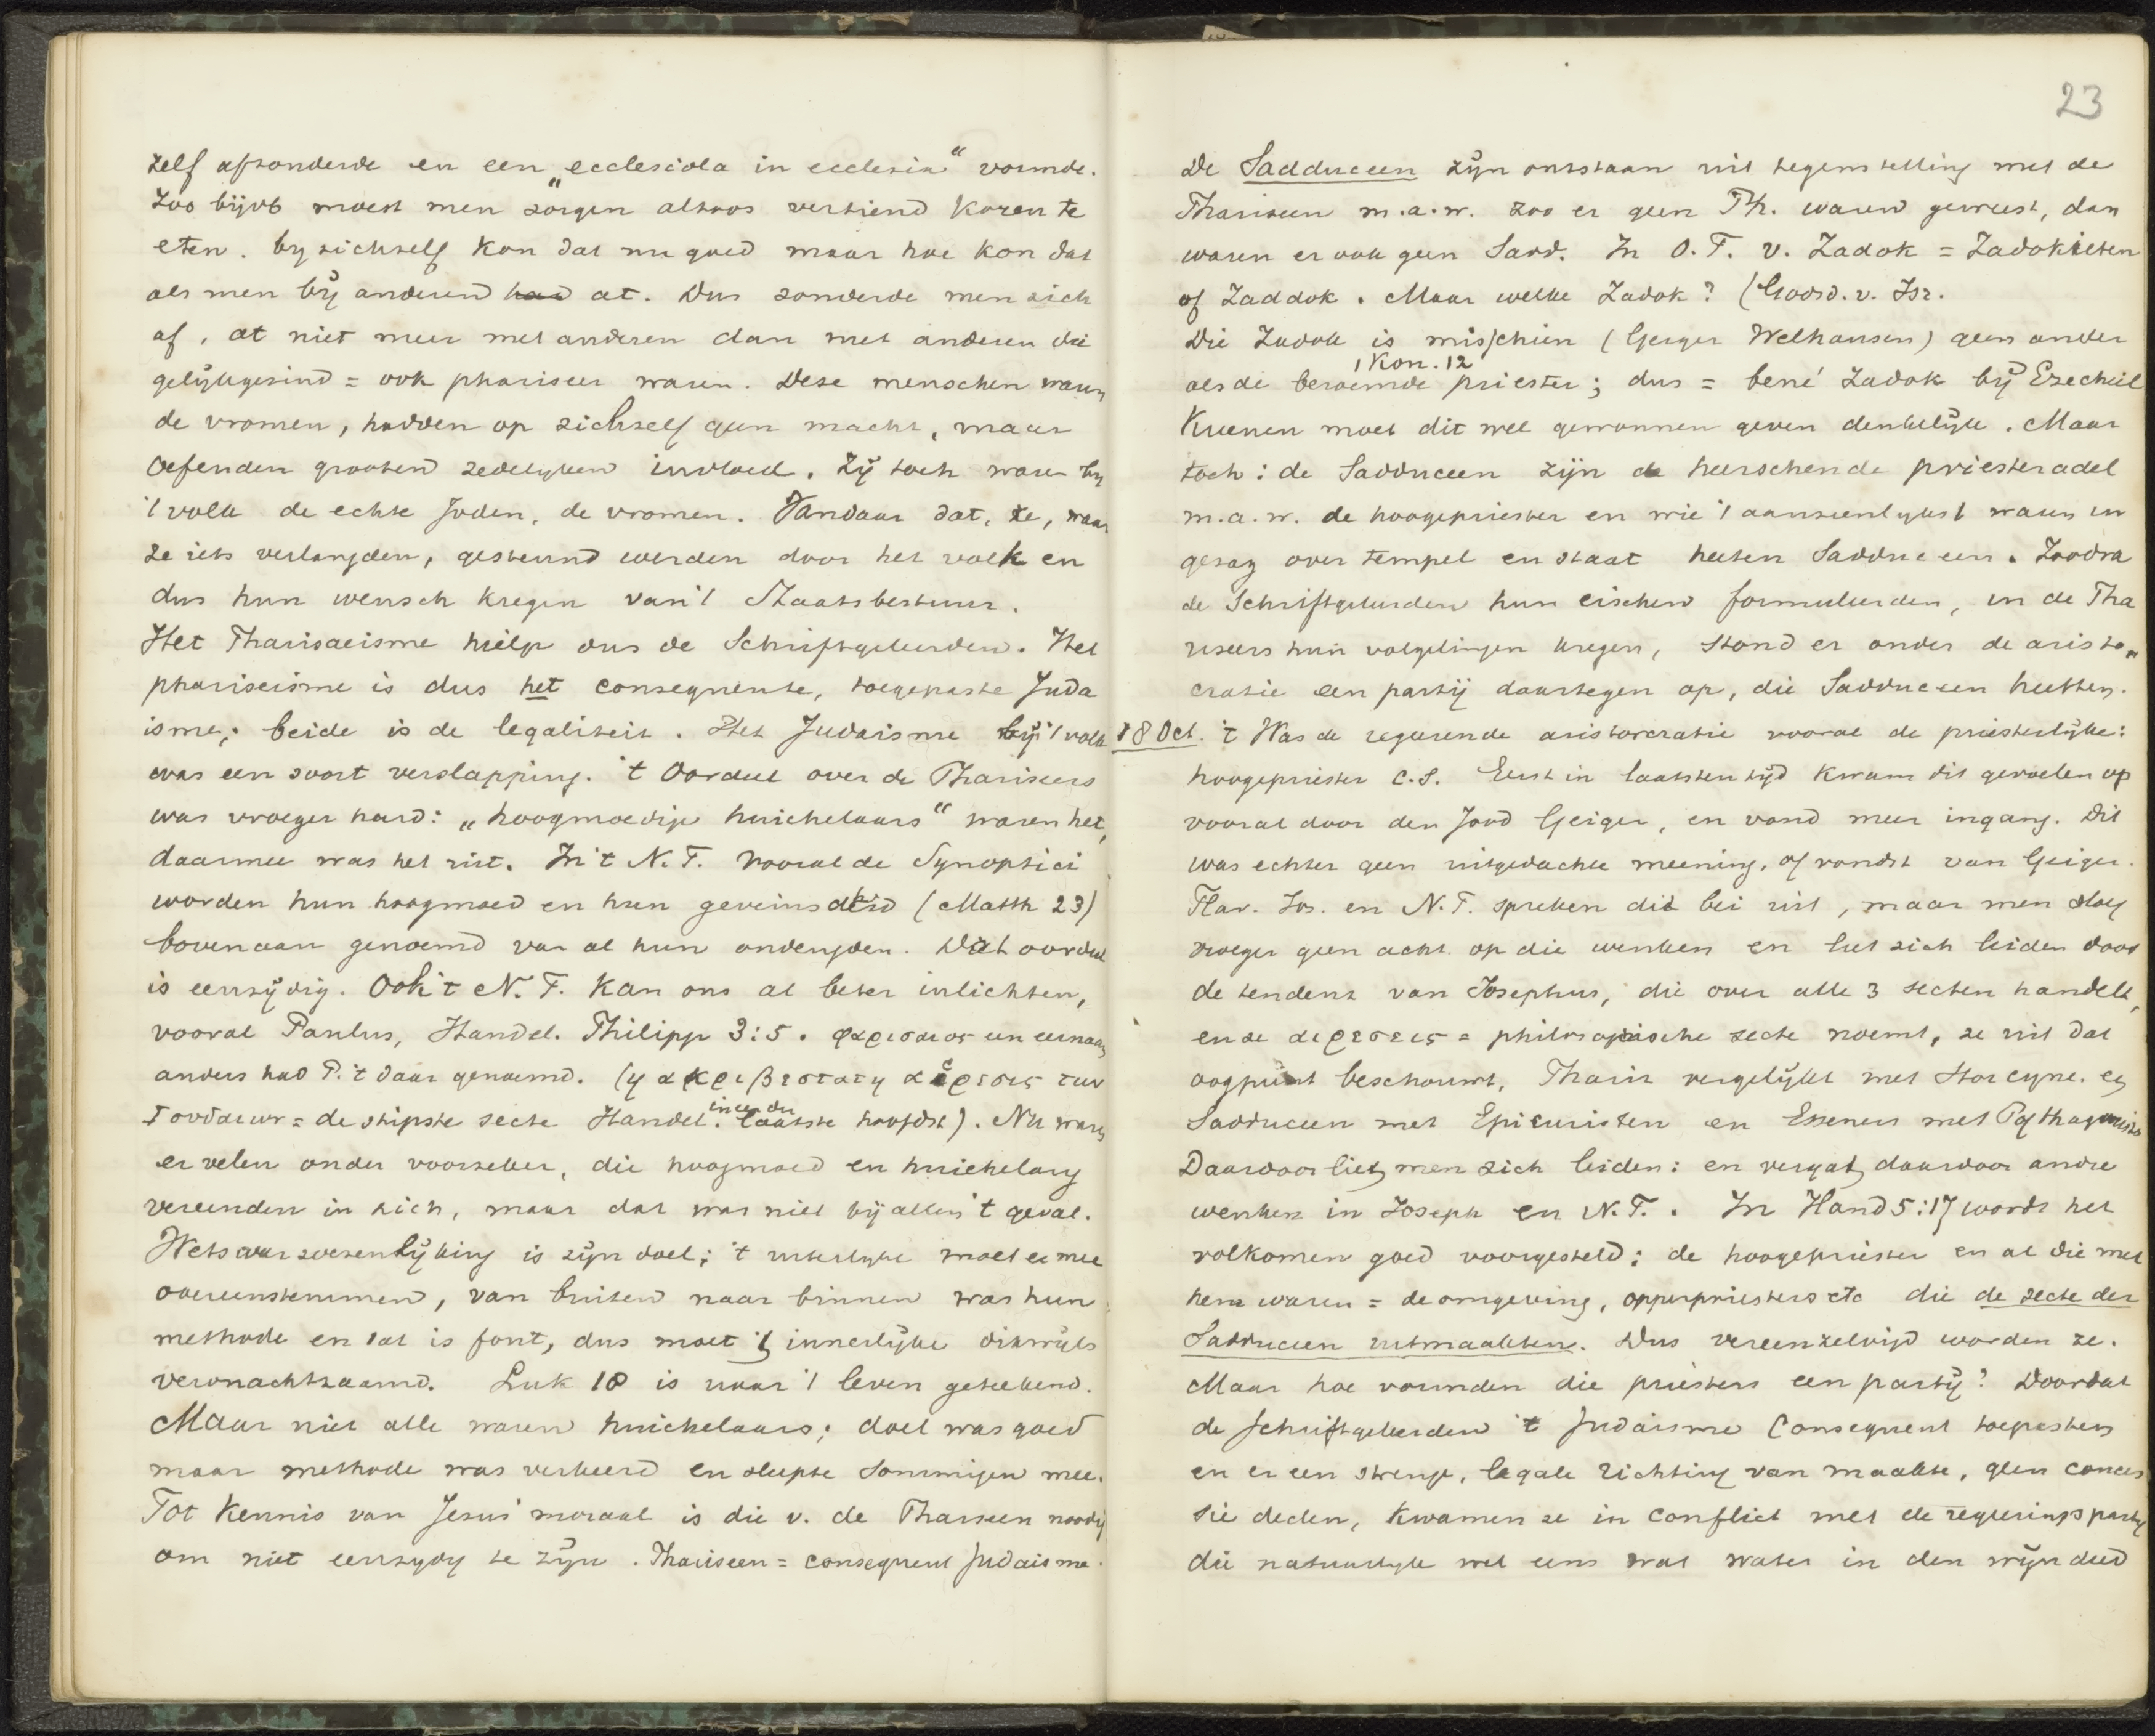 zelf afzonderde en een „ecclesiola in ecclesia“ vormde.
Zoo bijvb moest men zorgen altoos vertiend koren te
eten. by zichzelf kon dat nu goed maar hoe kon dat
als men bÿ anderen had at. Dus zonderde men zich
af, at niet meer met anderen dan met anderen die
gelÿkgezind = ook phariseer waren. Deze menschen waren
de vromen, hadden op zichzelf geen macht, maar
oefenden grooten zedelyken invloed. Zÿ toch waren by
't volk de echte Joden, de vromen. Vandaar dat, ze, waar
ze iets verlangden, gesteund werden door het volk en
dus hun wensch kregen van 't Staatsbestuur.
Het Pharisaeisme hielp dus de Schriftgeleerden. Het
phariseisme is dus het consequente, toegepaste Juda
isme; beide is de legaliteit. Het Judaisme bÿ 't volk
was een soort verslapping. 't Oordeel over de Phariseers
was vroeger hard: „hoogmoedige huichelaars“ waren het,
daarmee was het uit. In 't N.T. vooral de Synoptici
worden hun hoogmoed en hun geveinsdheid (Matth 23)
bovenaan genoemd van al hun ondeugden. Dat oordeel
is eenzÿdig. Ook 't N.T. kan ons al beter inlichten,
vooral Paulus, Handel. Philipp 3:5. φαρισαιος een eernaam
anders had P. 't daar genoemd. (η ακριβεστατη αιρεσις των
Ιουδαιων = de stipste secte Handel. in een der laatste hoofdst). Nu waren
er velen onder voorzeker, die hoogmoed en huichelary
vereenden in zich, maar dat was niet bÿ allen 't geval.
Wetsverwezenlÿking is zÿn doel; 't uiterlyke moet er mee
overeenstemmen, van buiten naar binnen was hun
methode en dat is fout, dus moet 't innerlÿke dikwÿls
veronachtzaamd. Luk 18 is naar 't leven geteekend.
Maar niet alle waren huichelaars; doel was goed
maar methode was verkeerd en sleepte sommigen mee.
Tot kennis van Jesus' moraal is die v. de Pharseen noodig
om niet eenzydy te zÿn. Phariseen = consequent Judaisme.
23
De Sadduceen zÿn ontstaan uit tegenstelling met de
Phariseen m.a.w. zoo er geen Ph. waren geweest, dan
waren er ook geen Sadd. In O.T. v. Zadok = Zadokieten
of Zaddok. Maar welke Zadok? (Godsd. v. Isr.
Die Zadok is misschien (Geiger Welhausen) geen ander
1 Kon. 12
als de beroemde priester; dus = bené Zadok bÿ Ezechiël
Kuenen moet dit wel gewonnen geven denkelÿk. Maar
toch: de Sadduceen zÿn de heerschende priesteradel
m.a.w. de hoogepriester en wie 't aanzienlykst waren en
gezag over tempel en staat heeten Sadduceen. Zoodra
de Schriftgeleerden hun eischen formuleerden, en de Pha
riseers hun volgelingen kregen, stond er onder de aristo„
cratie een partÿ daartegen op, die Sadduceen heetten.
18 Oct. 't Was de regeerende aristocratie vooral de priesterlÿke:
hoogepriester c.s. Eerst in laatsten tÿd kwam dit gevoelen op
vooral door den Jood Geiger, en vond meer ingang. Dit
was echter geen uitgedachte meening, of vondst van Geiger.
Flav. Jos. en N.T. spreken dit bei uit, maar men sloeg
vroeger geen acht op die wenken en liet zich leiden door
de tendenz van Josephus, die over alle 3 secten handelt,
en ze αιρεσεις = philosophische secte noemt, ze uit dat
oogpunt beschouwt, Pharis vergelÿkt met Stoicyne. en
Sadduceen met Epicuristen en Esseners met Pythagoristen
Daardoor liet men zich leiden: en vergat daardoor andre
wenken in Joseph en N.T. . In Hand 5:17 wordt het
volkomen goed voorgesteld: de hoogepriester en al die met
hem waren = de omgeving, opperpriesters etc die de secte der
Sadduceen uitmaakten. Dus vereenzelvigd worden ze.
Maar hoe vormden die priesters een partÿ? Doordat
de schriftgeleerden 't Judaisme consequent toepasten
en er een strenge, legale richting van maakte, geen conces
sie deden, kwamen ze in conflict met de regeeringsparty
die natuurlyk wel eens wat water in den wÿn deed